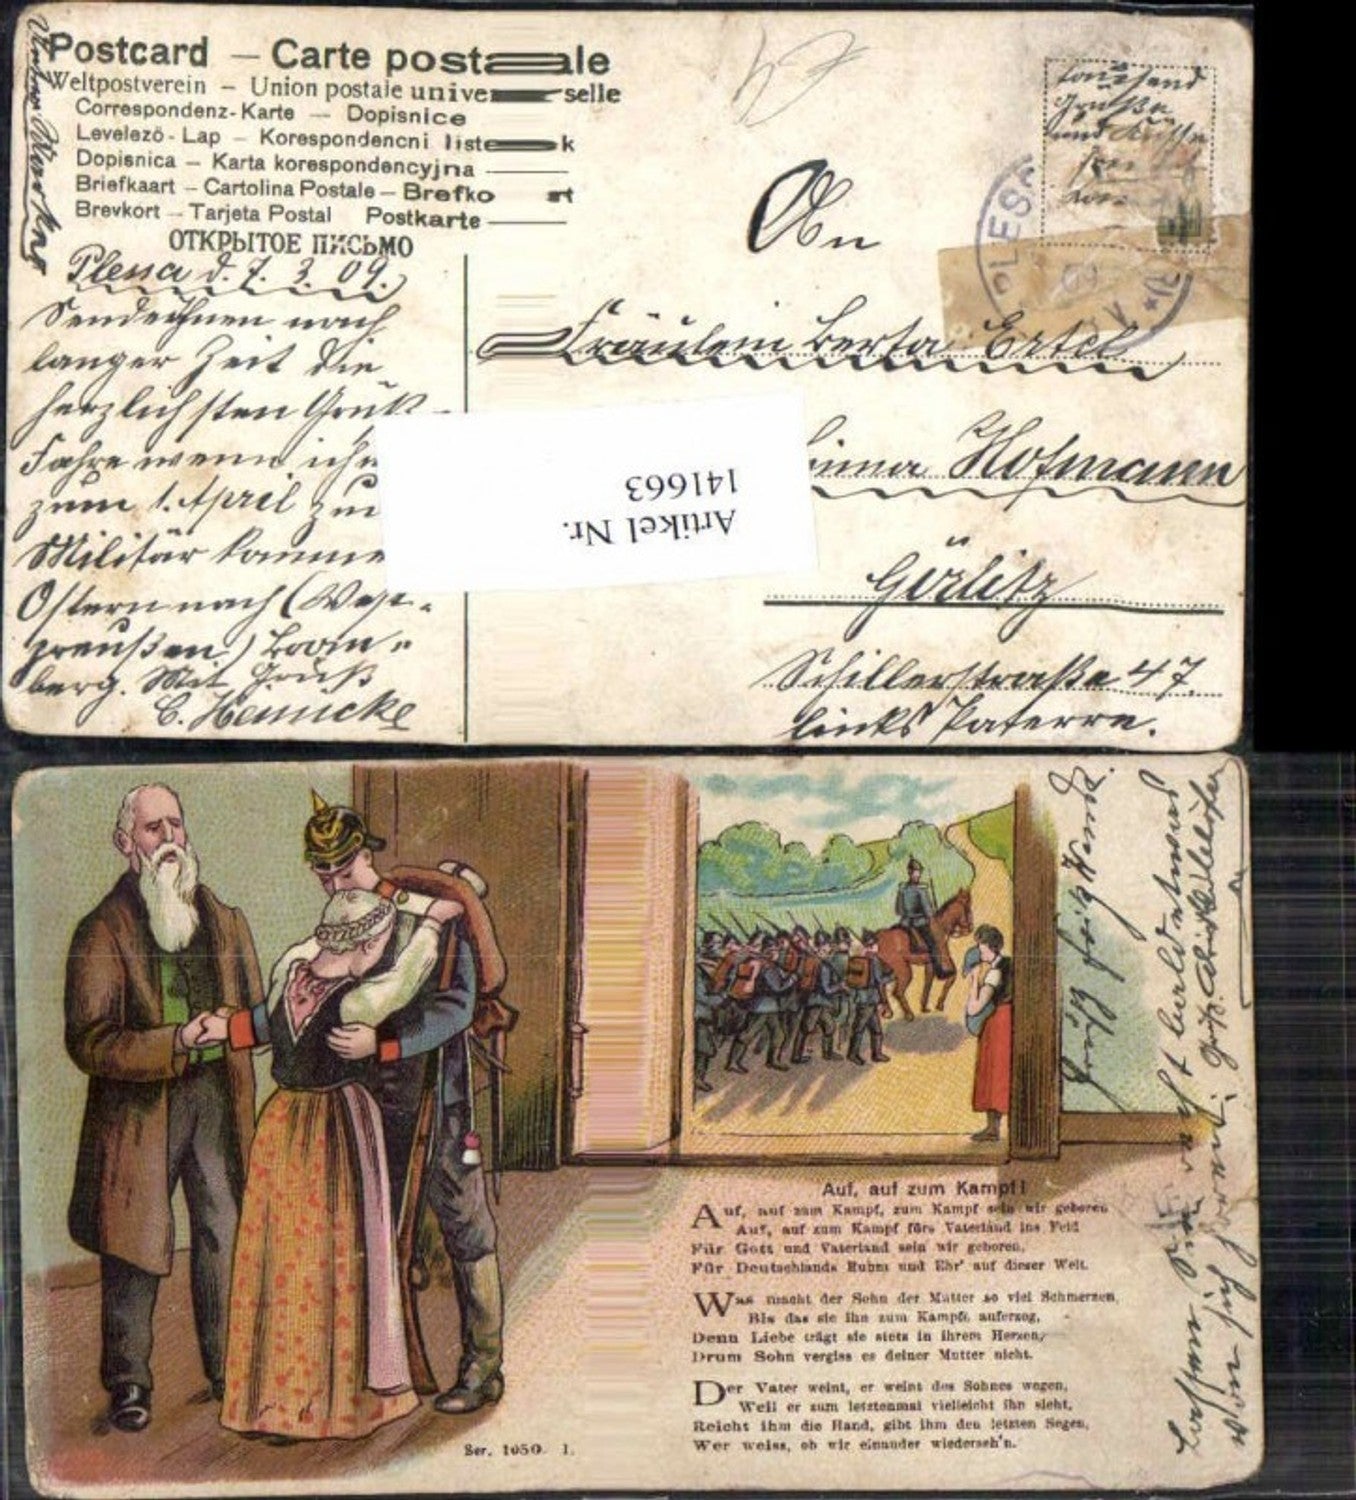 Postcard — Carte postale
Weltpostverein – Union postale universelle
Correspondenz-Karte — Dopisnice
Levelező-Lap – Korespondencni listek
Dopisnica — Karta korespondencyjna
Briefkaart – Cartolina Postale – Brefko rt
Brevkort — Tarjeta Postal Postkarte
ОТКРЫТОЕ ПИСЬМО
Plessa d. 7. 3. 09.
Sende Ihnen nach
langer Zeit die
herzlichsten Grüß-
Fahre wenn ich
zum 1. April zu
Militär komme
Ostern nach (West-
preußen) Brom-
berg. Mit Gruß
C. Heinicke
tausend
Grüße
und Küsse
PLESSA
An
Fräulein Berta Ertel
Hofmann
Görlitz
Schillerstraße 47.
links Paterre.
Artikel Nr.
141663
Auf, auf zum Kampf!
Auf, auf zum Kampf, zum Kampf sein wir geboren
Auf, auf zum Kampf fürs Vaterland ins Feld
Für Gott und Vaterland sein wir geboren,
Für Deutschlands Ruhm und Ehr' auf dieser Welt.
Was macht der Sohn der Mutter so viel Schmerzen,
Bis das sie ihn zum Kampfe auferzog,
Denn Liebe trägt sie stets in ihrem Herzen,
Drum Sohn vergiss es deiner Mutter nicht.
Der Vater weint, er weint des Sohnes wegen,
Weil er zum letztenmal vielleicht ihn sieht,
Reicht ihm die Hand, gibt ihm den letzten Segen,
Wer weiss, ob wir einander wiederseh'n.
Ser. 1050. 1.
Gruß Fritz
Lassen Sie recht bald etwas
von sich hören! Gruß